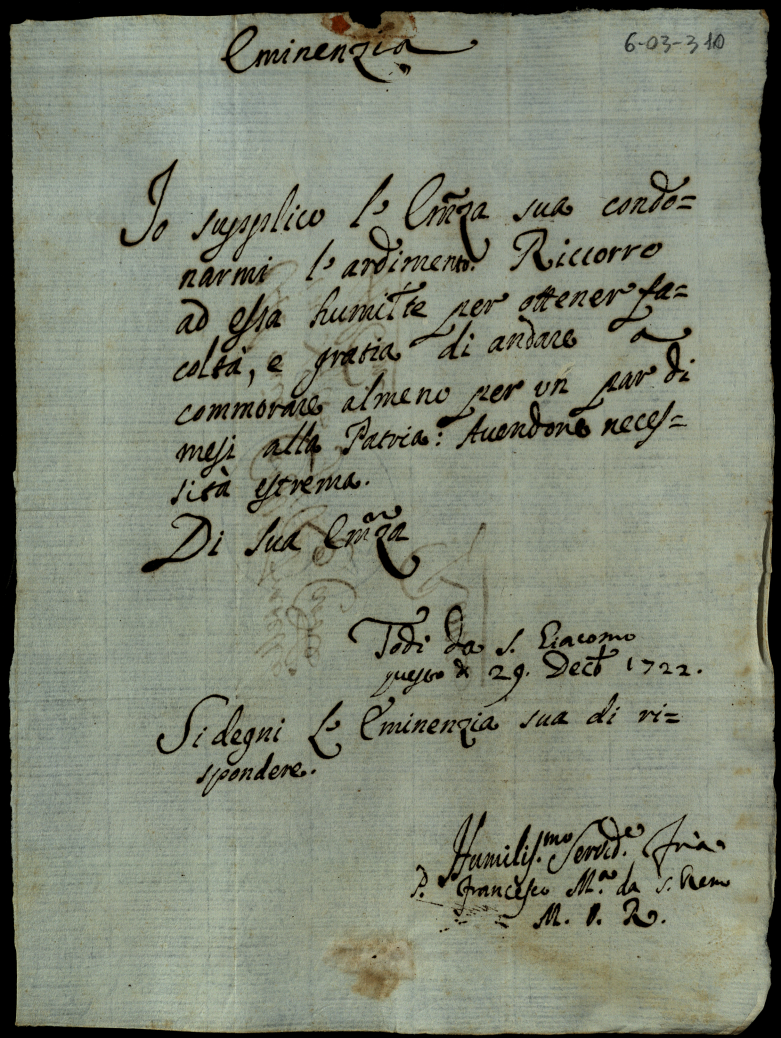 6-03-310
Eminenzia
Io supplico l'Em̃za sua condo=
narmi l'ardimento. Riccorro
ad essa humil̃te per ottener fa=
coltà, e gratia di andare a
commorare almeno per un par di
mesi alla Patria: Avendone neces=
sità estrema.
Di sua Em̃za
Todi da S. Giacomo
questo dì 29. Decẽb 1722.
Si degni l'Eminenzia sua di ri=
spondere.
Humilis.mo Servid.e
P. Francesco M.a da S. Remo
M. O. R.